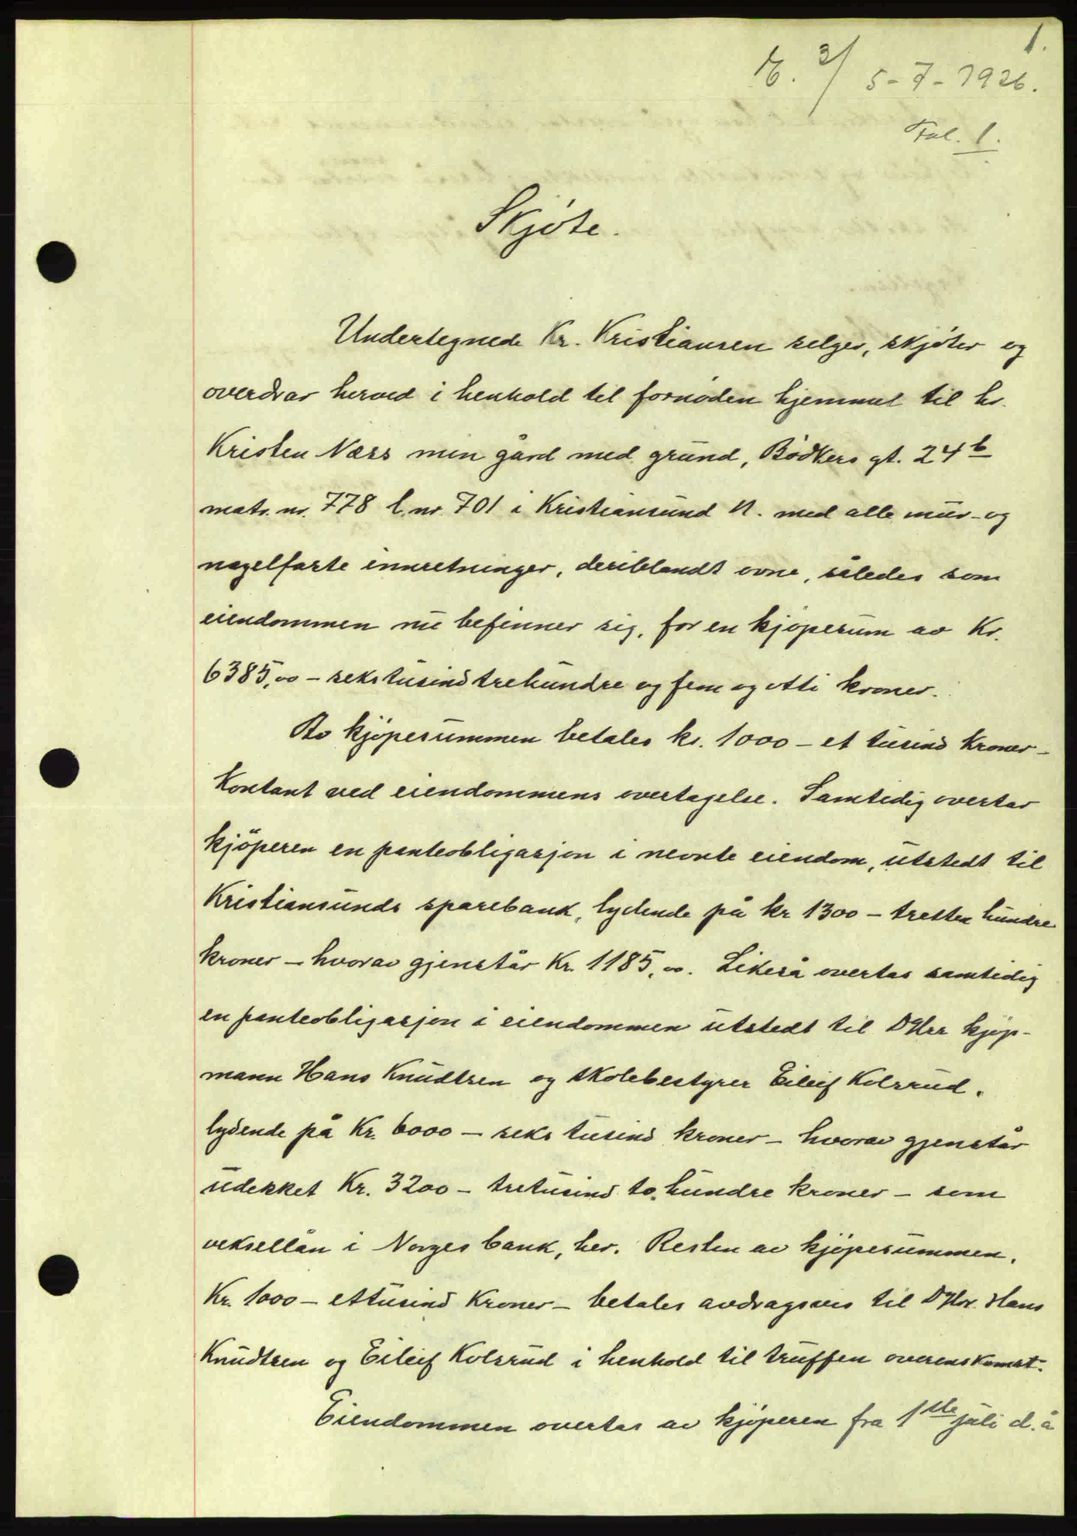 1.
E. 3/ 5-7-1926.
Fol. 1.
Skjøte.
Undertegnede Kr. Kristiansen selger, skjøter og
overdrar herved i henhold til fornøden hjemmel til hr.
Kristen Næss min gård med grund, Bødkers gt. 24 b
matr. nr. 778 l. nr. 701 i Kristiansund N. med alle mur- og
nagelfaste innretninger, deriblandt ovne, således som
eiendommen nu befinner sig, for en kjøpesum av Kr.
6385,00 - sekstusindtrehundre og fem og otti kroner.
Av kjøpesummen betales kr. 1000 - et tusind kroner -
kontant ved eiendommens overtagelse. Samtidig overtar
kjøperen en panteobligasjon i nevnte eiendom, utstedt til
Kristiansunds sparebank, lydende på kr 1300 - tretten hundre
kroner - hvorav gjenstår Kr. 1185,00. Likeså overtas samtidig
en panteobligasjon i eiendommen utstedt til D'Hrr kjøp-
mann Hans Knudtzen og skolebestyrer Eileif Kolsrud,
lydende på Kr. 6000 - seks tusind kroner - hvorav gjenstår
udekket Kr. 3200 - tretusind to hundre kroner - som
veksellån i Norges bank, her. Resten av kjøpesummen,
Kr. 1000 - ettusind kroner - betales avdragsvis til D'Hrr. Hans
Knudtzen og Eileif Kolsrud i henhold til truffen overenskomst.
Eiendommen overtas av kjøperen fra 1ste juli d. å